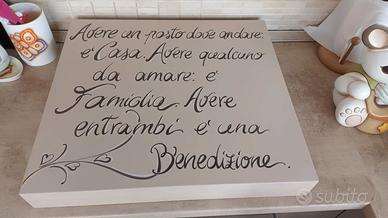 Avere un posto dove andare:
é Casa. Avere qualcuno
da amare: é
Famiglia. Avere
entrambi é una
Benedizione.
subito